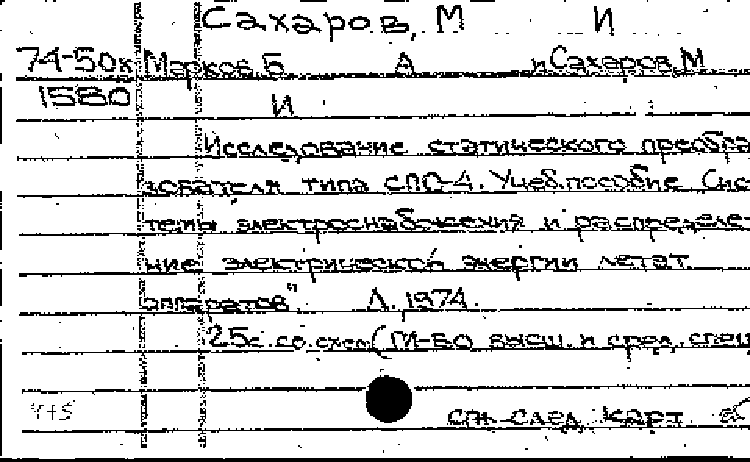 Сахаров, М И
74-50к Марков, Б А и Сахаров, М
1580 И
Исследование статического преобра
зователя типа СПО-4. Учеб. пособие (Сис
темы электроснабжения и распределе
ние электрической энергии летат.
аппаратов" Л. 1974.
25с. со схем (М-во высш. и сред. спец
см. след. карт